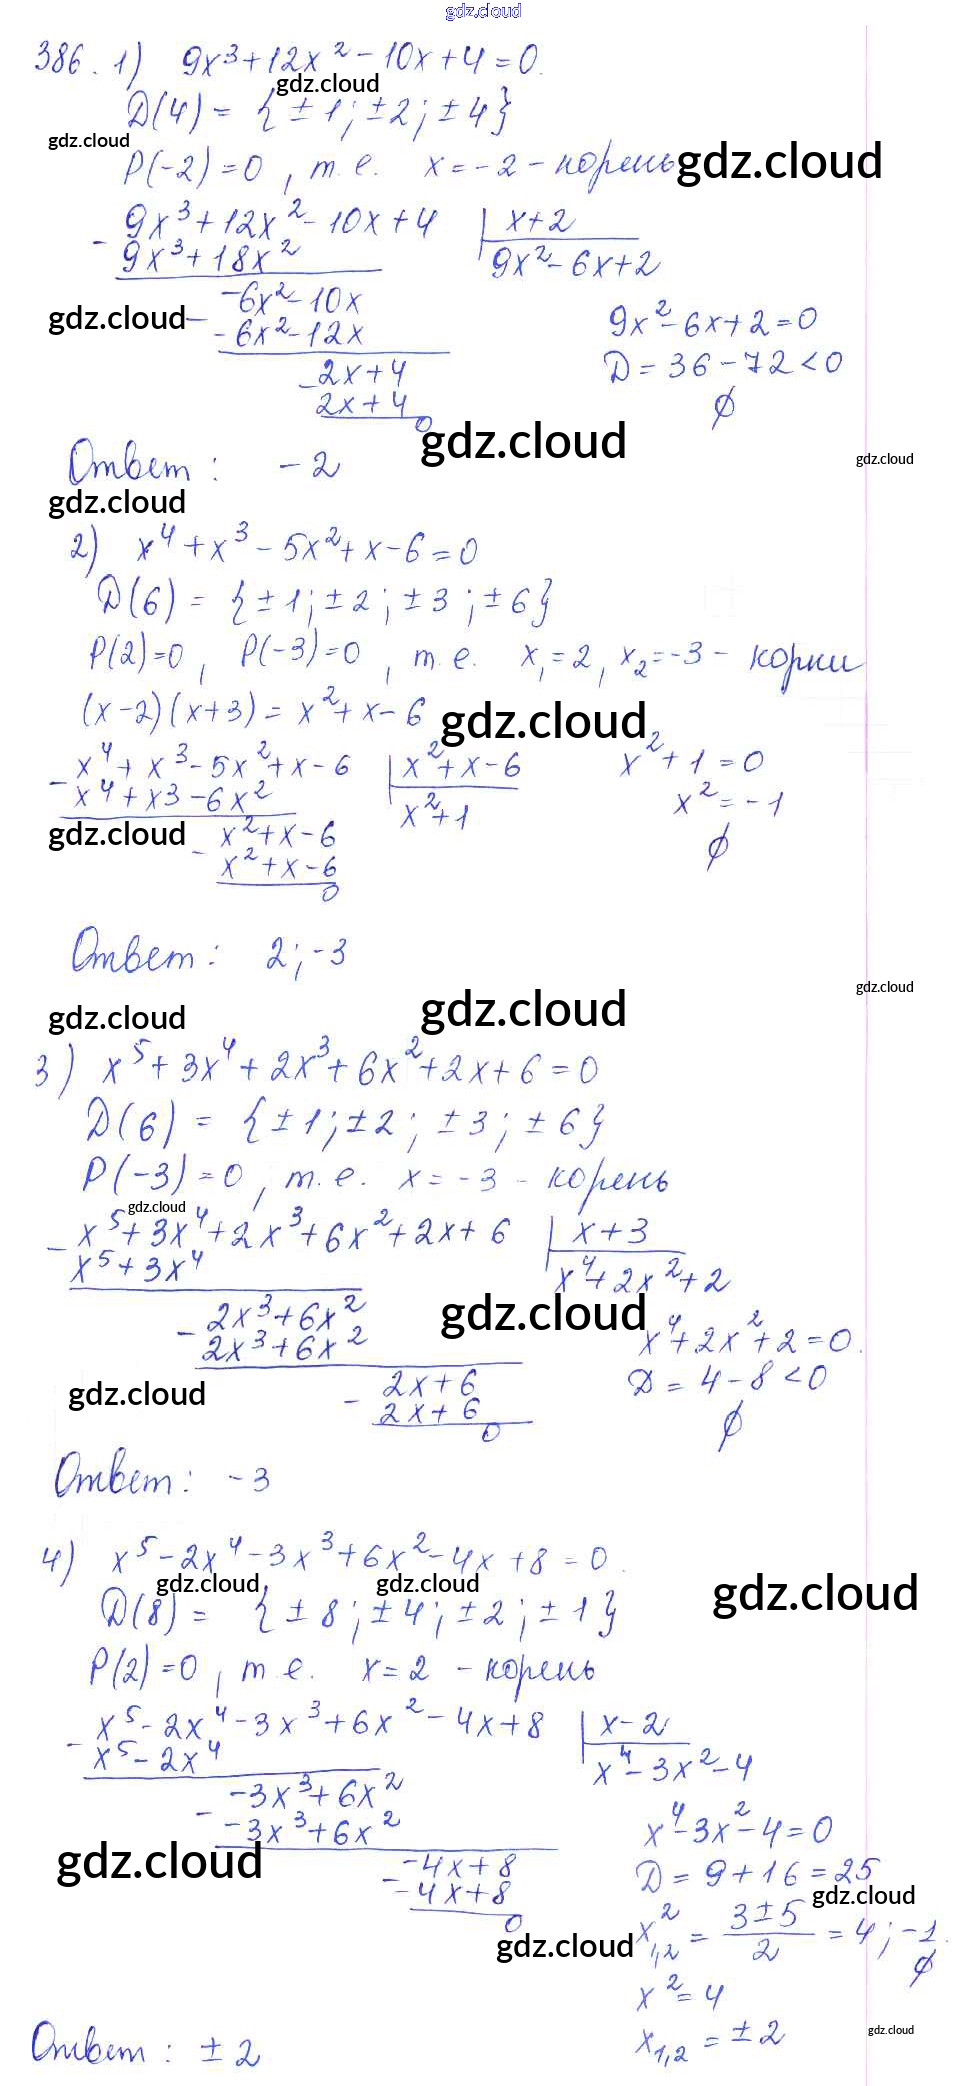 gdz.cloud
386. 1) 9x³+12x²-10x+4=0.
gdz.cloud
D(4) = {±1; ±2; ±4}
gdz.cloud
P(-2)=0, т.е. x=-2 - корень
gdz.cloud
- 9x³+12x²-10x+4 | x+2
9x³+18x² | 9x²-6x+2
-6x²-10x
gdz.cloud
- -6x²-12x
9x²-6x+2=0
- 2x+4
D=36-72<0
2x+4
∅
0
gdz.cloud
Ответ: -2
gdz.cloud
gdz.cloud
2) x⁴+x³-5x²+x-6=0
D(6) = {±1; ±2; ±3; ±6}
P(2)=0, P(-3)=0, т.е. x₁=2, x₂=-3 - корни
(x-2)(x+3)=x²+x-6
gdz.cloud
- x⁴+x³-5x²+x-6 | x²+x-6
x²+1=0
x⁴+x³-6x² | x²+1
x²=-1
gdz.cloud
- x²+x-6
∅
x²+x-6
0
Ответ: 2; -3
gdz.cloud
gdz.cloud
gdz.cloud
3) x⁵+3x⁴+2x³+6x²+2x+6=0
D(6) = {±1; ±2; ±3; ±6}
P(-3)=0, т.е. x=-3 - корень
gdz.cloud
- x⁵+3x⁴+2x³+6x²+2x+6 | x+3
x⁵+3x⁴ | x⁴+2x²+2
gdz.cloud
- 2x³+6x²
2x³+6x²
x⁴+2x²+2=0.
- 2x+6
D=4-8<0
gdz.cloud
2x+6
∅
0
Ответ: -3
4) x⁵-2x⁴-3x³+6x²-4x+8=0.
gdz.cloud
gdz.cloud
gdz.cloud
D(8) = {±8; ±4; ±2; ±1}
P(2)=0, т.е. x=2 - корень
- x⁵-2x⁴-3x³+6x²-4x+8 | x-2
x⁵-2x⁴ | x⁴-3x²-4
- -3x³+6x²
-3x³+6x²
x⁴-3x²-4=0
gdz.cloud
- -4x+8
D=9+16=25
-4x+8
gdz.cloud
0
gdz.cloud
x²₁,₂ = (3±5)/2 = 4; -1.
∅
x²=4
gdz.cloud
x₁,₂=±2
Ответ: ±2